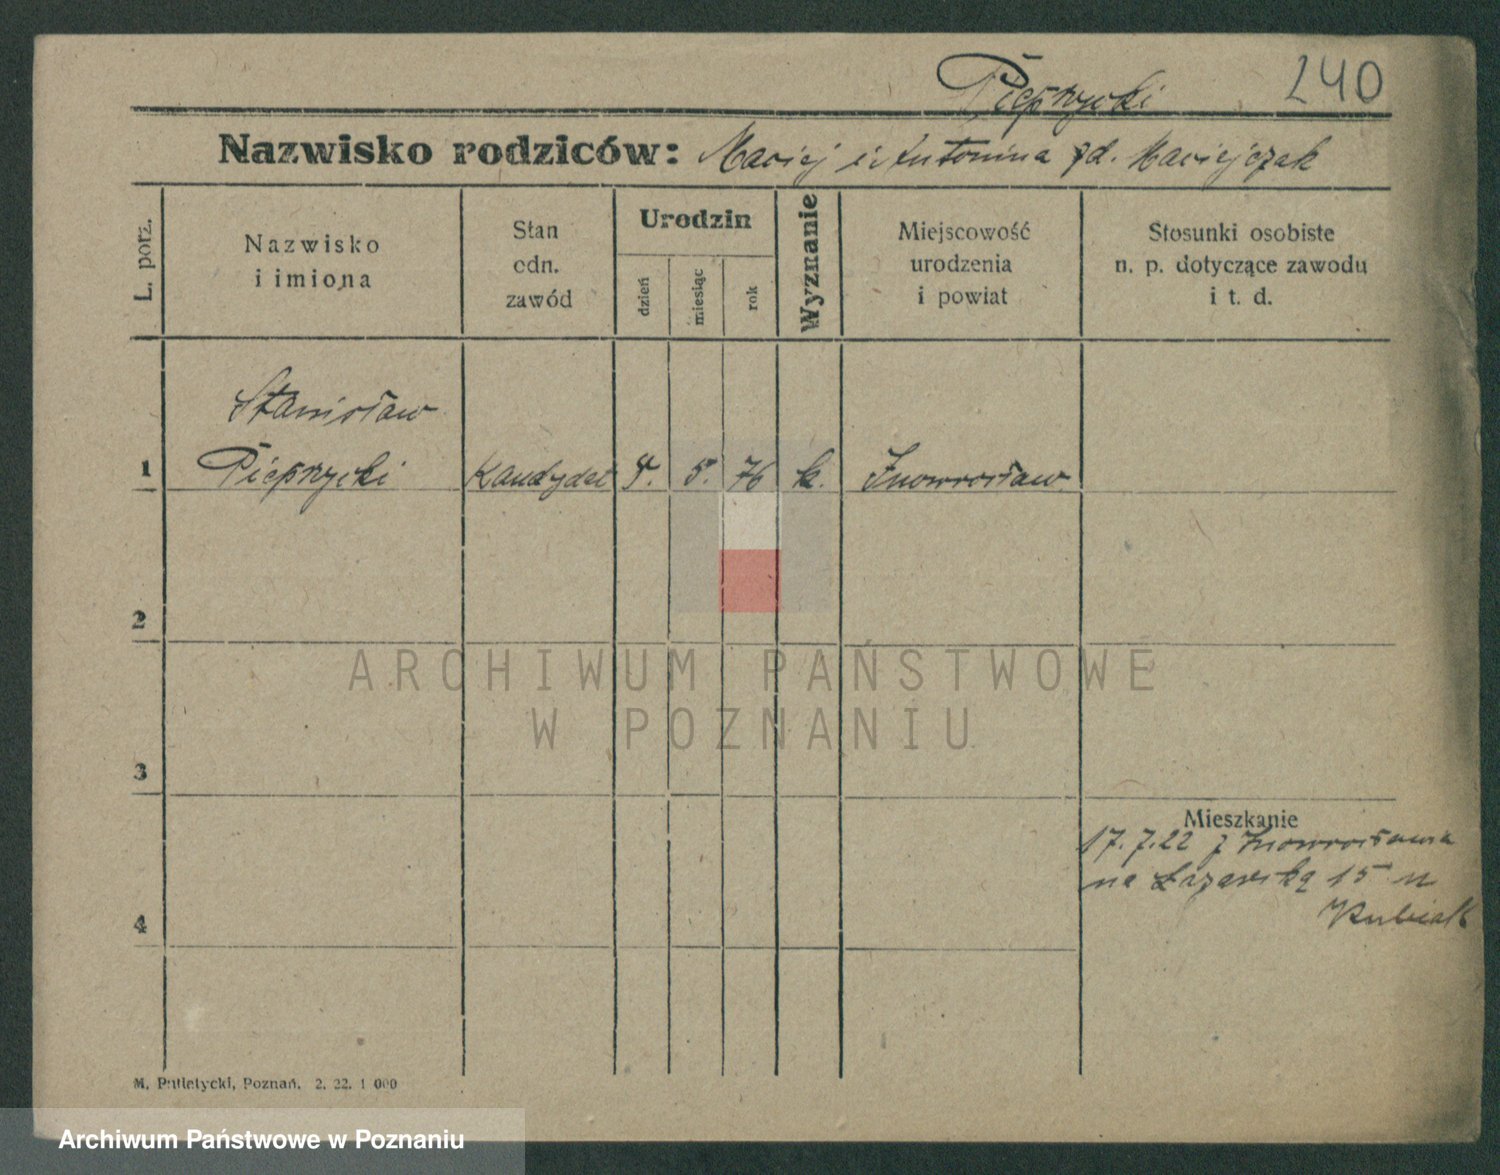 240
Pieprzycki
Nazwisko rodziców: Maciej i Antonina zd. Maciejczak
L. porz.
Nazwisko
i imiona
Stan
odn.
zawód
Urodzin
dzień
miesiąc
rok
Wyznanie
Miejscowość
urodzenia
i powiat
Stosunki osobiste
n. p. dotyczące zawodu
i t. d.
Stanisław
1 Pieprzycki Kandydat 4. 5. 76 k. Inowrocław
2
3
4
Mieszkanie
17. 7. 22 z Inowrocławia
na Łazarską 15 u
Kubiak
M. Putiatycki, Poznań. 2. 22. 1 000
ARCHIWUM PAŃSTWOWE
W POZNANIU
Archiwum Państwowe w Poznaniu